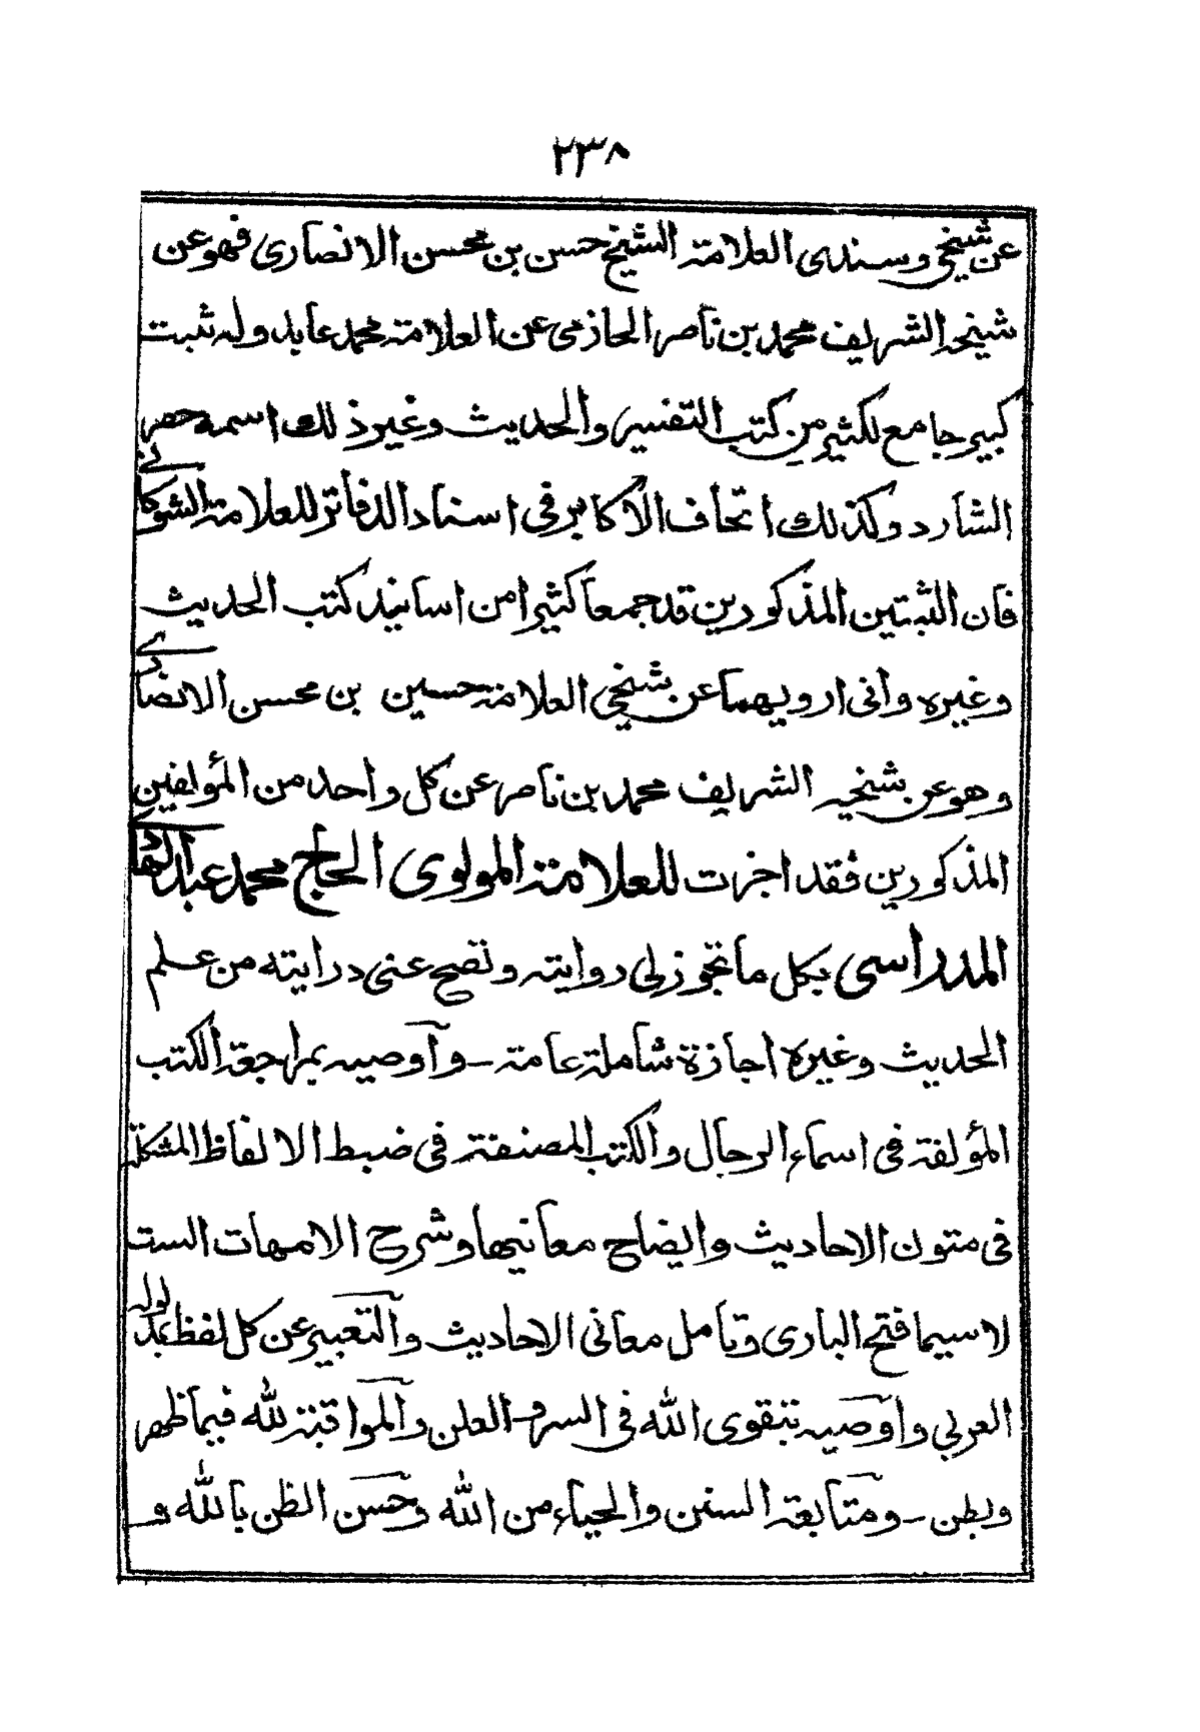 ٢٣٨
عن شيخي وسندى العلامة الشيخ حسن بن محسن الانصارى فهو عن
شيخه الشريف محمد بن ناصر الحازمى عن العلامة محمد عابد وله ثبت
كبير جامع لكثير من كتب التفسير والحديث وغير ذلك اسمه حصر
الشارد وكذلك اتحاف الاكابر فى اسناد الدفاتر للعلامة الشوكانے
فان الثبتين المذكورين قد جمعا كثيرا من اسانيد كتب الحديث
وغيره وانى ارويهما عن شيخي العلامة حسين بن محسن الانصارے
وهو عن شيخيه الشريف محمد بن ناصر عن كل واحد من المؤلفين
المذكورين فقد اجزت للعلامة المولوى الحاج محمد عبد
المدراسى بكل ما تجوز لى روايته وتصح عنى درايته من علم
الحديث وغيره اجازة شاملة عامة ـ وأوصيه بمراجعة الكتب
المؤلفة فى اسماء الرجال والكتب المصنفة فى ضبط الالفاظ المشكلة
فى متون الاحاديث وايضاح معانيها وشرح الامهات الست
لاسيما فتح البارى وتأمل معانى الاحاديث والتعبير عن كل لفظ بمدلوله
العربي واوصيه بتقوى الله فى السر والعلن والمراقبة لله فيما ظهر
وبطن ـ ومتابعة السنن والحياء من الله وحسن الظن بالله و